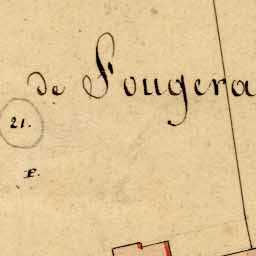 de Fougera
21.
E.